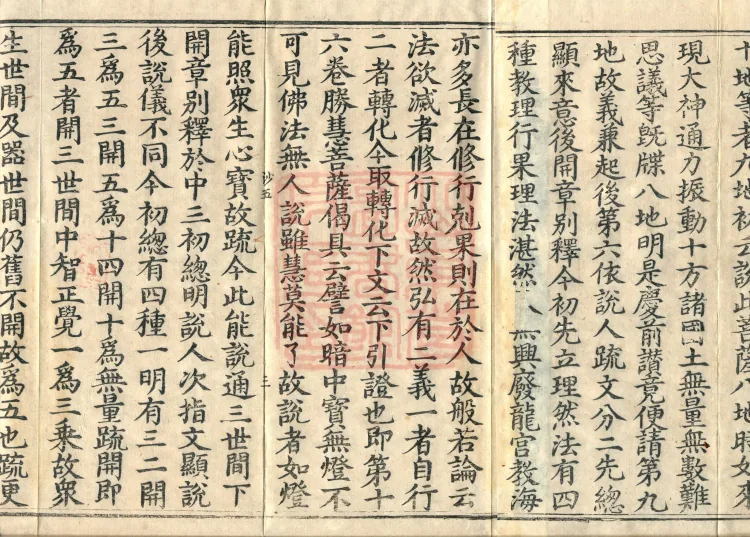 十地等者九地初云說此菩薩八地時如來
現大神通力振動十方諸國土無量無數難
思議等旣牒八地明是慶前讚竟便請第九
地故義兼起後第六依說人疏文分二先總
顯來意後開章別釋今初先立理然法有四
種教理行果理法湛然人無興廢龍宮教海
亦多長在修行剋果則在於人故般若論云
法欲滅者修行滅故然弘有二義一者自行
二者轉化今取轉化下文云下引證也即第十
六卷勝慧菩薩偈具云譬如暗中寶無燈不
可見佛法無人說雖慧莫能了故說者如燈
能照衆生心寶故疏今此能說通三世間下
開章別釋於中三初總明說人次指文顯說
後說儀不同今初總有四種一明有三二開
三爲五三開五爲十四開十爲無量疏開即
爲五者開三世間中智正覺一爲三乘故衆
生世間及器世間仍舊不開故爲五也疏更
沙五
三